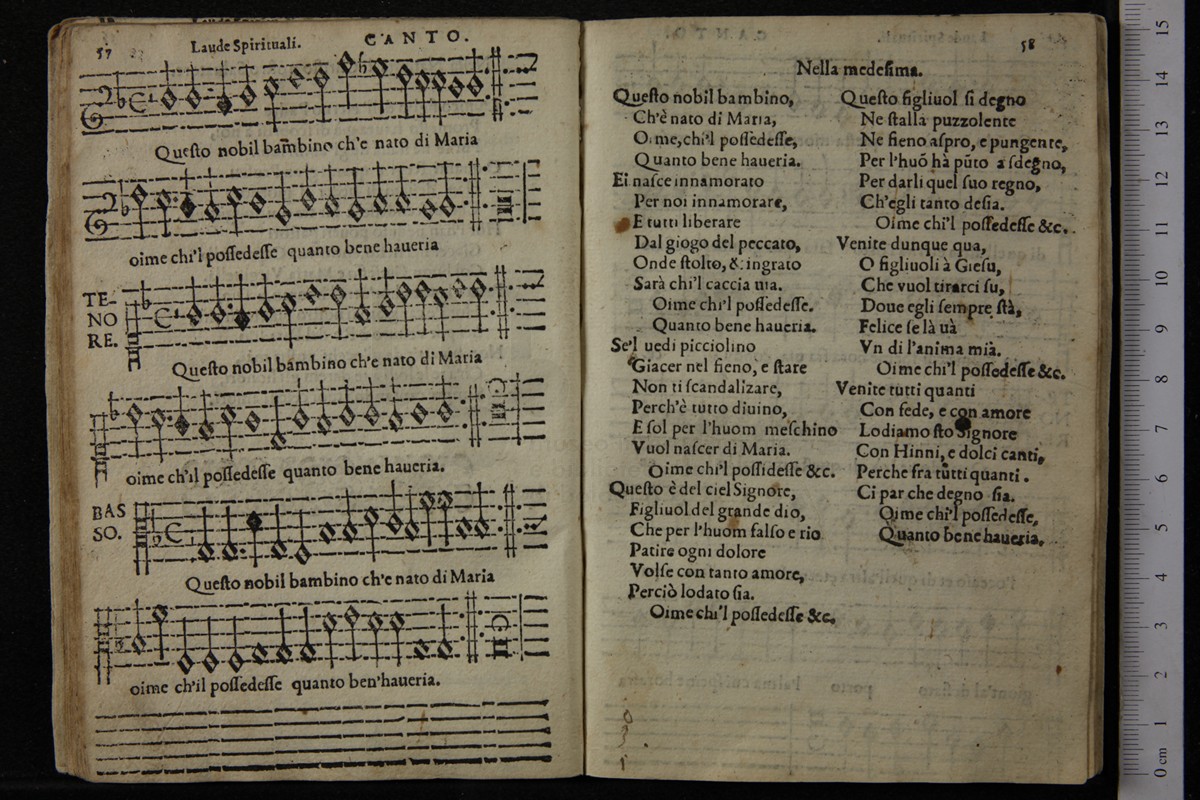 57
Laude Spirituali.
CANTO.
Queſto nobil bam̃bino ch'e nato di Maria
oime chi'l poſſedeſſe quanto bene haueria
TE-
NO
RE.
Queſto nobil bambino ch'e nato di Maria
oime ch'il poſſedeſſe quanto bene haueria.
BAS
SO.
Queſto nobil bambino ch'e nato di Maria
oime ch'il poſſedeſſe quanto ben'haueria.
58
Nella medeſima.
Queſto nobil bambino,
Ch'è nato di Maria,
Oime, chi'l poſſedeſſe,
Quanto bene haueria.
Ei naſce innamorato
Per noi innamorare,
E tutti liberare
Dal giogo del peccato,
Onde ſtolto, & ingrato
Sarà chi'l caccia uia.
Oime chi'l poſſedeſſe.
Quanto bene haueria.
Se'l uedi picciolino
Giacer nel fieno, e ſtare
Non ti ſcandalizare,
Perch'è tutto diuino,
E ſol per l'huom meſchino
Vuol naſcer di Maria.
Oime chi'l poſſideſſe &c.
Queſto è del ciel Signore,
Figliuol del grande dio,
Che per l'huom falſo e rio
Patire ogni dolore
Volſe con tanto amore,
Perciò lodato ſia.
Oime chi'l poſſedeſſe &c.
Queſto figliuol ſi degno
Ne ſtalla puzzolente
Ne fieno aſpro, e pungente,
Per l'huõ hà pũto a ſdegno,
Per darli quel ſuo regno,
Ch'egli tanto deſia.
Oime chi'l poſſedeſſe &c.
Venite dunque qua,
O figliuoli à Gieſu,
Che vuol tirarci ſu,
Doue egli ſempre ſtà,
Felice ſe là uà
Vn di l'anima mià.
Oime chi'l poſſedeſſe &c.
Venite tutti quanti
Con fede, e con amore
Lodiamo ſto Signore
Con Hinni, e dolci canti,
Perche fra tutti quanti.
Ci par che degno ſia.
Oime chi'l poſſedeſſe,
Quanto bene haueria.
15
14
13
12
11
10
9
8
7
6
5
4
3
2
1
0 cm